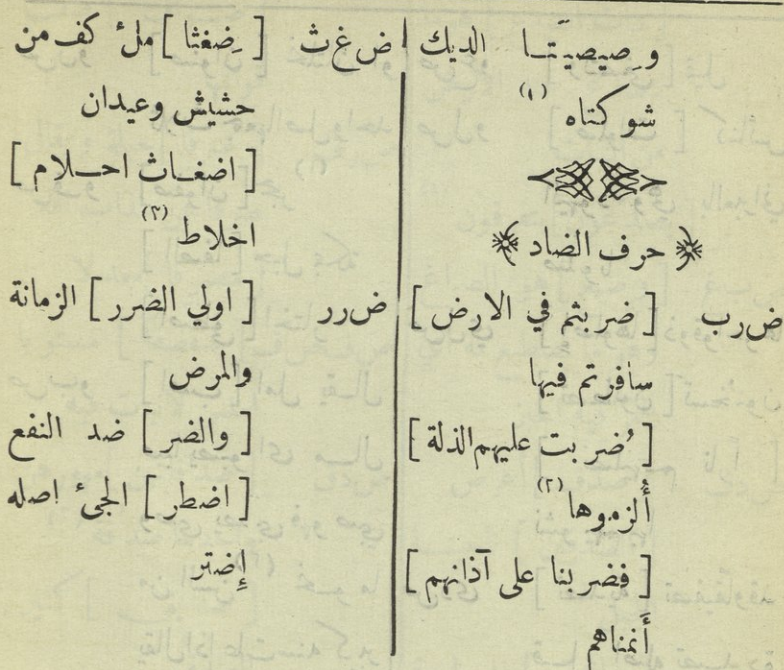 وصيصيّتــا الديك
شوكتاه (١)
حرف الضاد
ض رب [ ضربتم في الارض ]
سافرتم فيها
[ ضُربت عليهم الذلة ]
أُلزموها (٢)
[ فضربنا على آذانهم ]
أَنمناهم
ض غ ث [ ضِغثا ] ملءُ كف من
حشيش وعيدان
[ اضغــاث احــلام ]
اخلاط (٣)
ض رر [ اولي الضرر ] الزمانة
والمرض
[ والضر ] ضد النفع
[ اضطر ] الجىءُ اصله
إِضتر